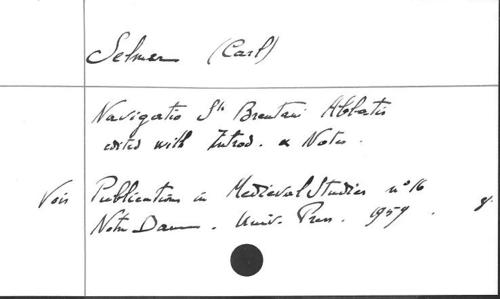 Selmer (Carl)
Navigatio Sti Brentani Abbatis
edited with Introd. & Notes.
Vois Publications in Medieval Studies n° 16
Notre Dame. Univ. Press. 1959.